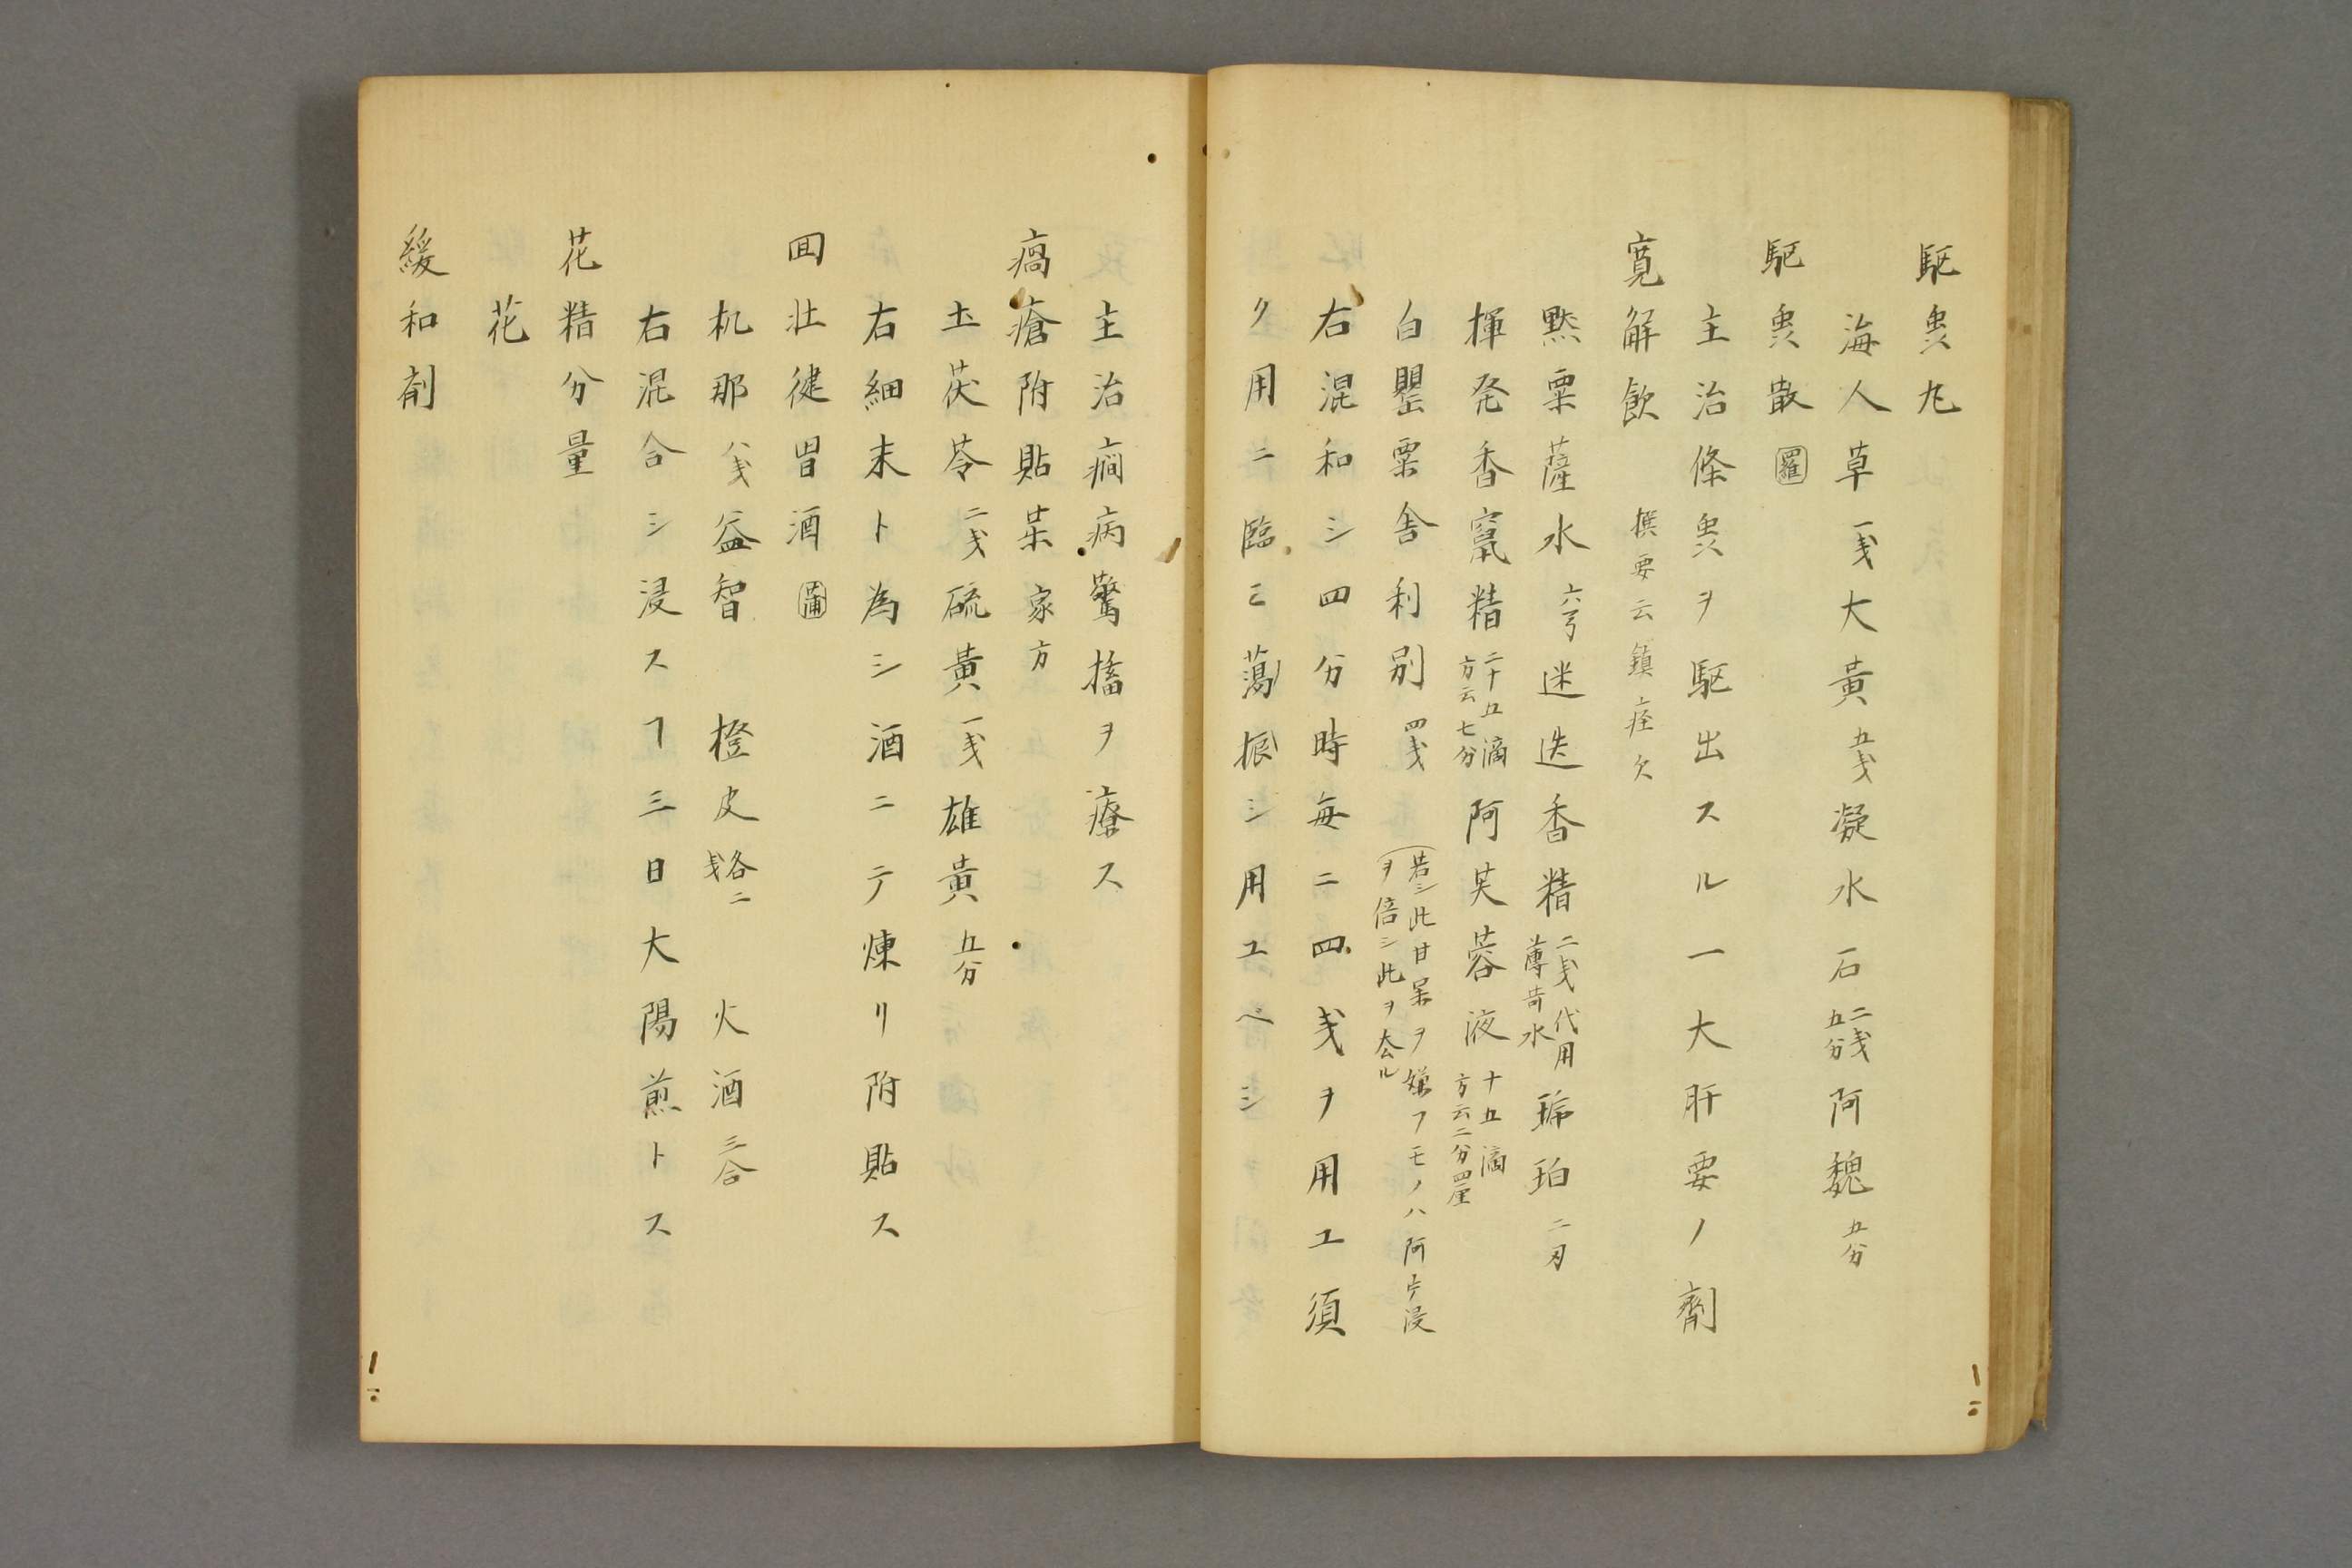 駆虫丸
海人草 一戔 大黄 五戔 凝水石 二戔五分 阿魏 五分
駆虫散 羅
主治條虫ヲ駆出スル一大肝要ノ劑
寛解飲 撰要云鎮痙欠
黙栗薩水 六弓 迷迭香精 二戔代用薄荷水 琥珀 二刃
揮発香竄精 二十五滴 方云七分 阿芙蓉液 十五滴 方云二分四厘
白罌粟舎利別 四戔 若シ此甘 ヲ嫌フモノハ阿片浸ヲ倍シ此ヲ去ル
右混和シ四分時毎ニ四戔ヲ用ユ須
ク用ニ臨ミ蕩振シ用ユベシ
主治癇病驚搐ヲ療ス
瘑瘡附貼 家方
土茯苓 二戔 硫黄 一戔 雄黄 五分
右細末ト為シ酒ニテ煉リ附貼ス
回壮健胃酒 蒲
机那 八戔 益智 橙皮 各二戔 火酒 三合
右混合シ浸スヿ三日大陽煎トス
花精分量
花
緩和剤